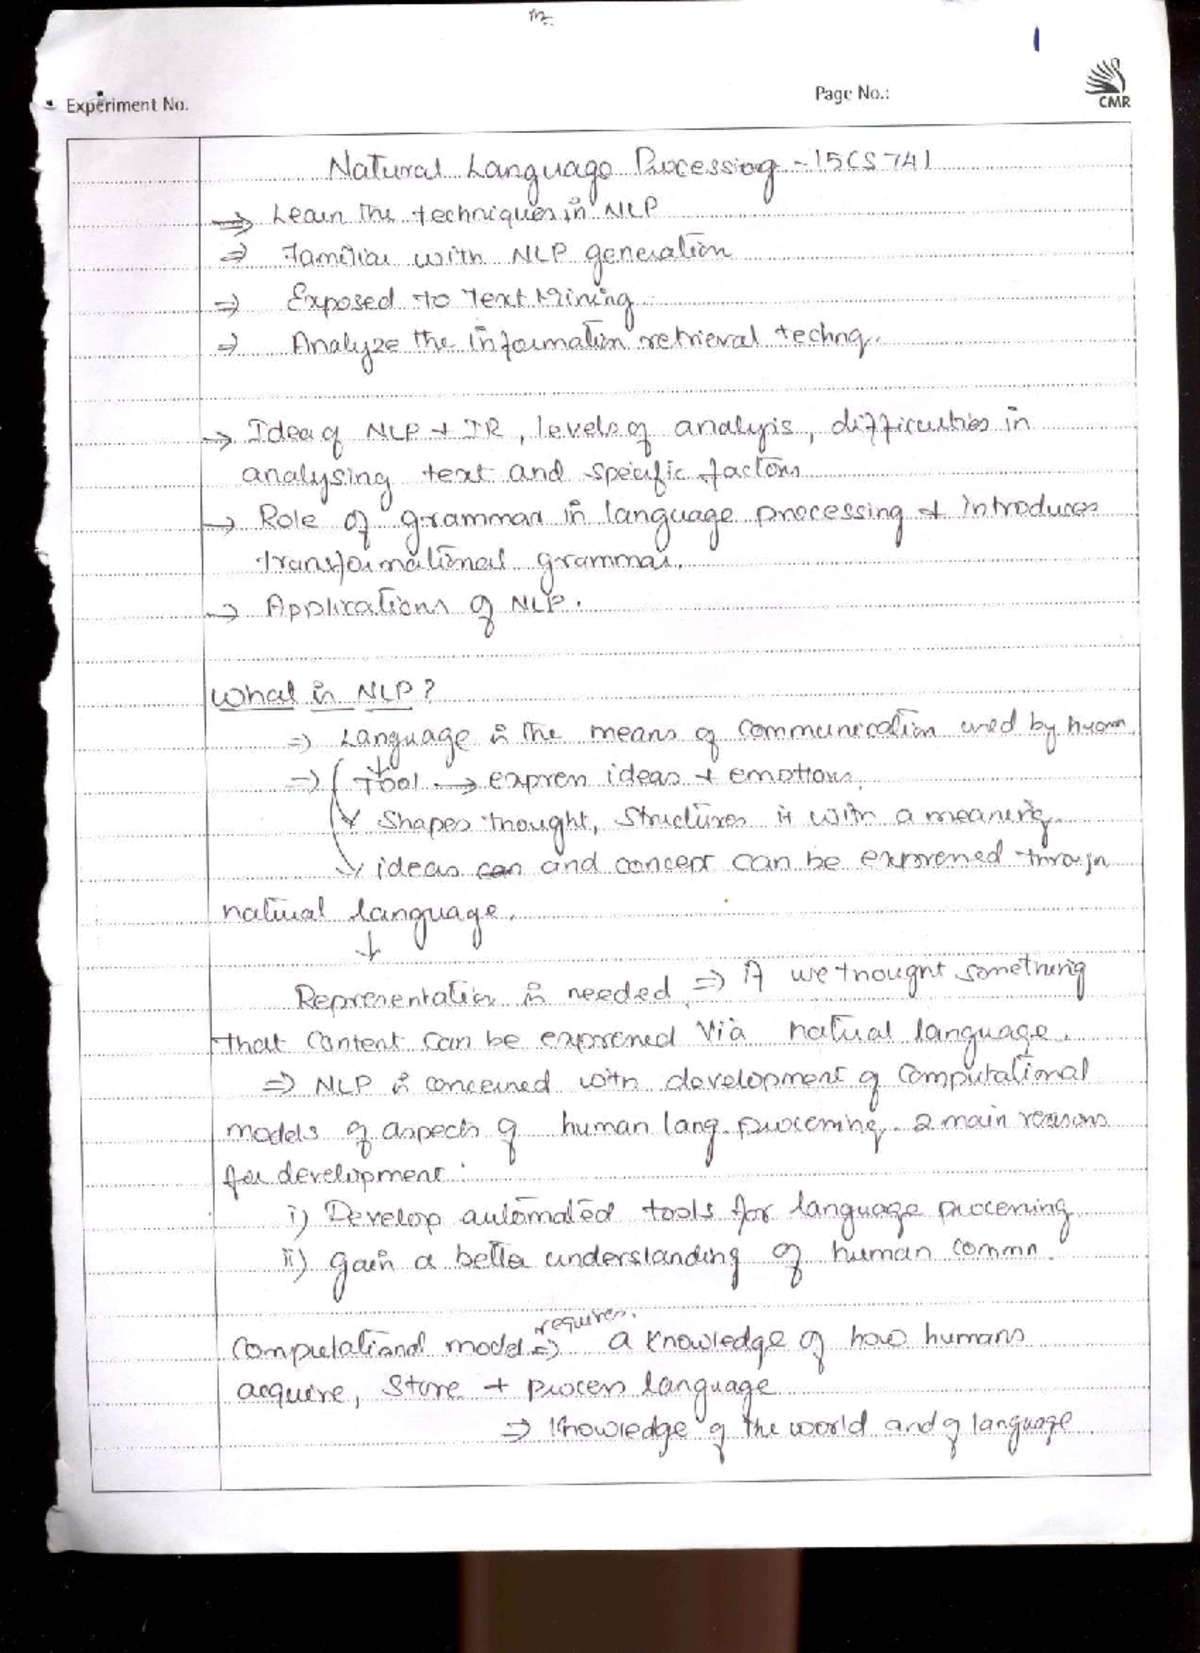 1
Experiment No.
Page No.:
CMR
Natural Language Processing - 15CS741
⇒ Learn the techniques in NLP
⇒ Familiar with NLP generation
⇒ Exposed to Text Mining.
⇒ Analyze the information retrieval technq..
→ Idea of NLP + IR, levels of analysis, difficulties in
analysing text and specific factors
→ Role of grammar in language processing + introduces
transformational grammar.
→ Applications of NLP.
What is NLP?
⇒ Language is the means of communication used by human.
⇒ Tool → express ideas + emotions.
↘ Shapes thought, structures it with a meaning.
↘ ideas can and concept can be expressed through
natural language.
↓
Representation is needed ⇒ if we thought something
that content can be expressed via natural language.
⇒ NLP is concerned with development of computational
models of aspects of human lang. processing. 2 main reasons
for development:
i) Develop automated tools for language processing
ii) gain a better understanding of human commn.
requires.
Computational model ⇒ a knowledge of how humans
acquire, store + process language
⇒ Knowledge of the world and of language.